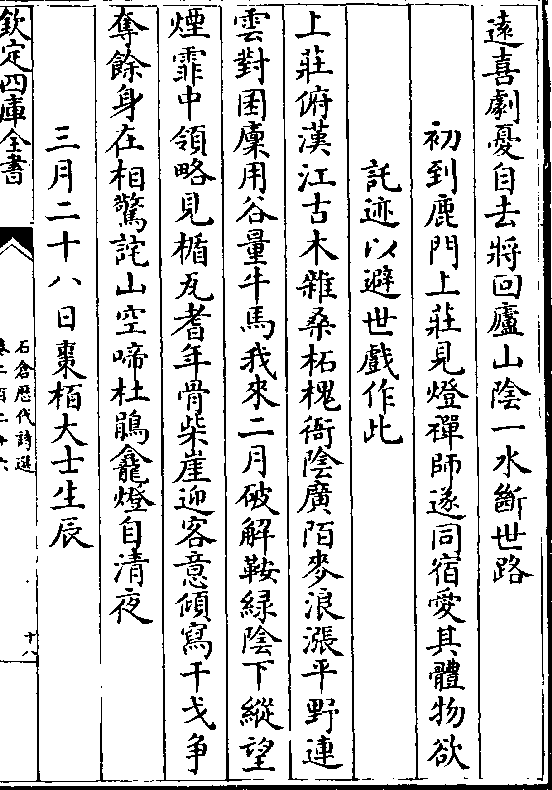 遠喜劇憂自去將回廬山陰一水斷世路
初到鹿門上莊見燈禪師遂同宿愛其體物欲
託迹以避世戲作此
上莊俯漢江古木雜桑柘槐衙陰廣陌麥浪漲平野連
雲對囷廩用谷量牛馬我來二月破解鞍緑陰下縱望
煙霏中領略見楯瓦耆年骨柴崖迎客意傾寫干戈争
奪餘身在相驚詫山空啼杜鵑龕燈自清夜
三月二十八日棗栢大士生辰
欽定四庫全書
石倉歴代詩選
卷二百二十六
十八